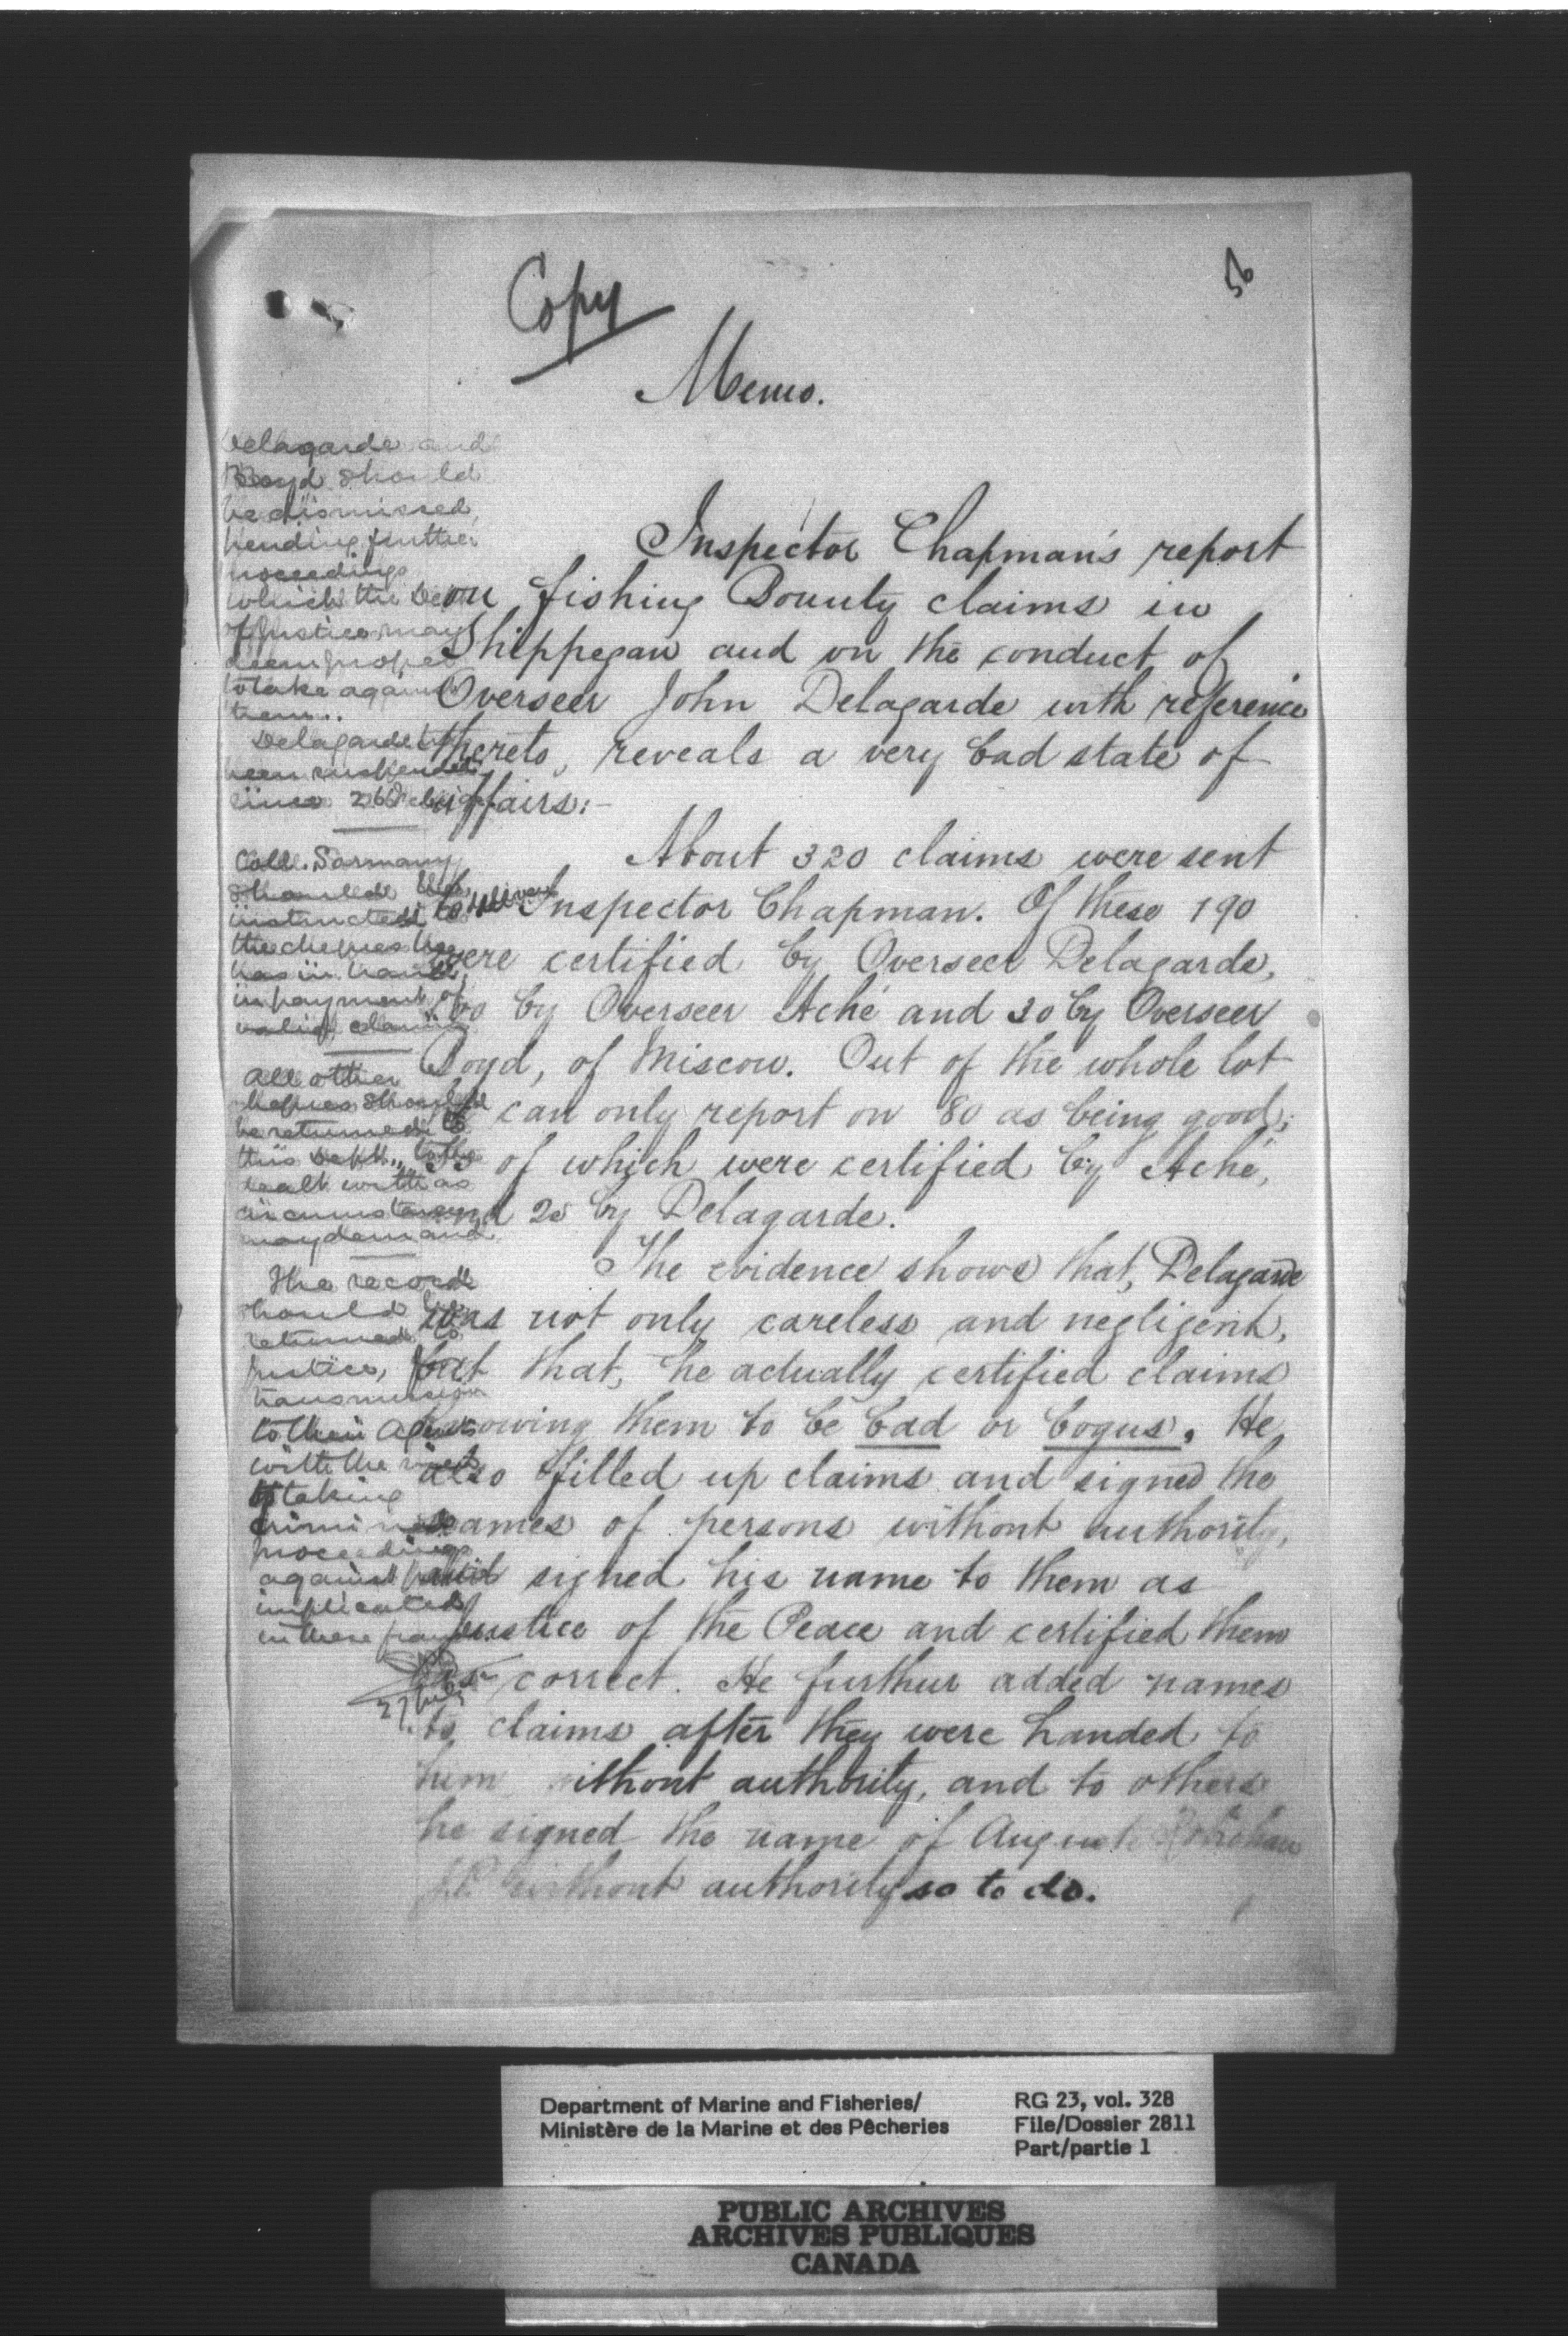 Copy
56
Memo.
Delagarde and
Boyd should
be dismissed,
pending further
proceedings
which the Dept
of Justice may
deem proper
to take against
them.
Delagarde has
been suspended
since 26
Coll. Sormany
should be
instructed to deliver
the cheques he
has in hand,
in payment of
valid claims
All other
cheques should
be returned to
this Dept., to be
dealt with as
circumstances
may demand.
The record
should be
returned to
Justice, for
transmission
to their Agent
with the view
of taking
criminal
proceedings
against parties
implicated
in these frauds.
27
Inspector Chapman's report
on fishing Bounty claims in
Shippegan and on the conduct of
Overseer John Delagarde with reference
thereto, reveals a very bad state of
affairs:-
About 320 claims were sent
to Inspector Chapman. Of these 190
were certified by Overseer Delagarde,
by Overseer Aché and 30 by Overseer
Boyd, of Miscow. Out of the whole lot
he can only report on 80 as being good;
55 of which were certified by Aché,
and 25 by Delagarde.
The evidence shows that, Delagarde
was not only careless and negligent,
but that, he actually certified claims
knowing them to be bad or bogus. He
also filled up claims and signed the
names of persons without authority,
and signed his name to them as
Justice of the Peace and certified them
as correct. He furthur added names
to claims after they were handed to
him without authority, and to others
he signed the name of August
J.P. without authority so to do.
Department of Marine and Fisheries/
Ministère de la Marine et des Pêcheries
RG 23, vol. 328
File/Dossier 2811
Part/partie 1
PUBLIC ARCHIVES
ARCHIVES PUBLIQUES
CANADA